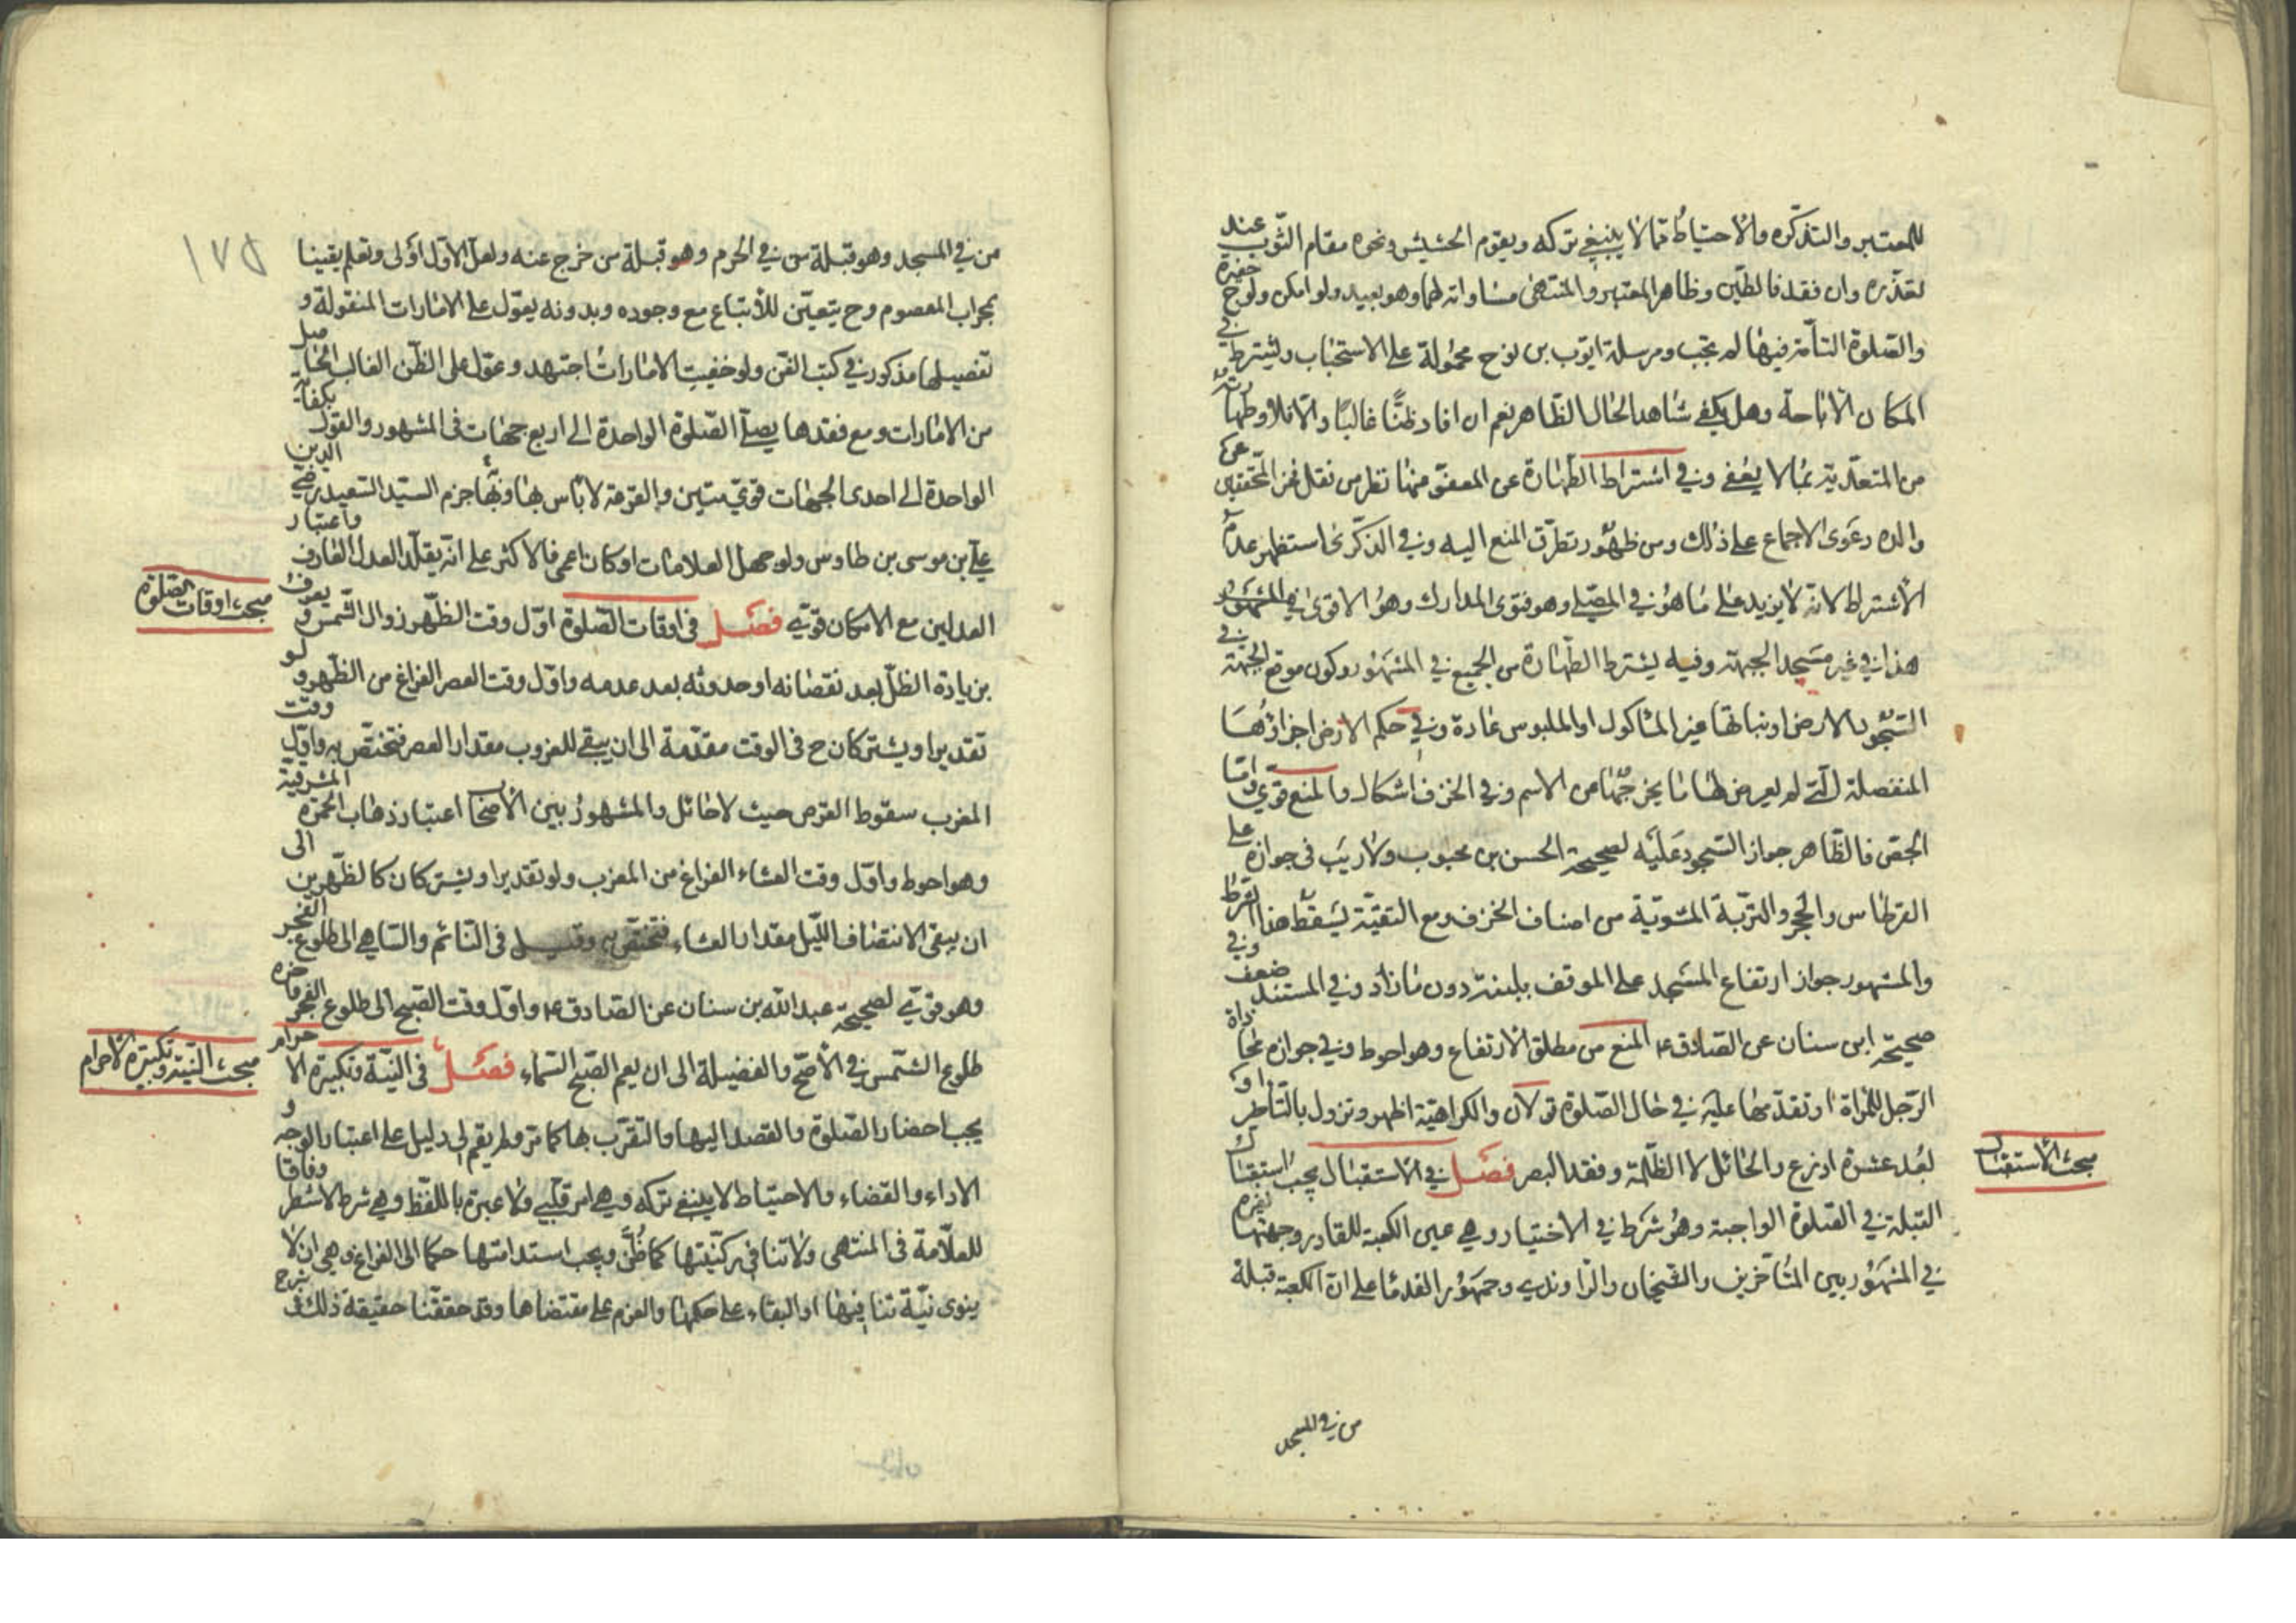 للمعتبر والتذكره والاحتياط مما لا ينبغي تركه ويقوم الحشيش ونحوه مقام الثوب عند
تعذره وان فقد فالطين وظاهر المعتبر والمنتهى مساواته لهما وهو بعيد ولو امكن ولوج حفيرة
والصلوة التامة فيها لم يجب ومرسلة ايوب بن نوح محمولة على الاستحباب ويشترط في
المكان الاباحة وهل يكفي شاهد الحال الظاهر نعم ان افاد ظنا غالبا والا فلا وطهارته
من المتعدية بما لا يعفى وفي اشتراط الطهارة عن المعفو عنها نظر من نقل فخر المحققين عن
والده دعوى الاجماع على ذلك ومن ظهور تطرق المنع اليه وفي الذكرى استظهر عدم
الاشتراط لانه لا يزيد على ما هو في المصلي وهو فتوى المدارك وهو الاقوى
هذا في غير مسجد الجبهة وفيه يشترط الطهارة من الجميع في المشهور وكون موضع الجبهة في
السجود الارض او نباتها غير المأكول او الملبوس عادة وفي حكم الارض اجزاؤها
المنفصلة التي لم يعرض لها ما يخرجها عن الاسم وفي الخزف اشكال والمنع قوي واما
الجص فالظاهر جواز السجود عليه لصحيحة الحسن بن محبوب ولا ريب في جوازه على
القرطاس والحجر والتربة المشوية من اصناف الخزف ومع التقية يسقط هذا الشرط
والمشهور جواز ارتفاع المسجد على الموقف بلبنة دون ما زاد وفي المستند ضعف وفي
صحيحة ابن سنان عن الصادق ع المنع من مطلق الارتفاع وهو احوط وفي جوازه محاذاة
الرجل للمرأة او تقدمها عليه في حال الصلوة قولان والكراهية اظهر وتزول بالتأخر او
بعد عشرة اذرع والحائل لا الظلمة وفقد البصر فصل في الاستقبال يجب استقبال
القبلة في الصلوة الواجبة وهو شرط في الاختيار وهي عين الكعبة للقادر وجهتها لغيره
في المشهور بين المتأخرين والشيخان والراوندي وجمهور القدماء على ان الكعبة قبلة
مبحث الاستقبال
من في المسجد
من في المسجد وهو قبلة من في الحرم وهو قبلة من خرج عنه ولعل الاول اولى وتعلم يقينا
بمحراب المعصوم وح يتعين للاتباع مع وجوده وبدونه يعول على الامارات المنقولة و
تفصيلها مذكور في كتب الفن ولو خفيت الامارات اجتهد وعول على الظن الغالب الحاصل
من الامارات ومع فقدها يصلي الصلوة الواحدة الى اربع جهات في المشهور والقول بكفاية
الواحدة الى احدى الجهات قوي متين والقرعة لا باس بها وبها جزم السيد السعيد رضي الدين
علي بن موسى بن طاوس ولو جهل العلامات او كان اعمى فالاكثر على انه يقلد العدل العارف واعتبار
العدلين مع الامكان قوي فصل في اوقات الصلوة اول وقت الظهر زوال الشمس ويعرف
بزيادة الظل بعد نقصانه او حدوثه بعد عدمه واول وقت العصر الفراغ من الظهر ولو
تقديرا ويشتركان ح في الوقت مقدمة الى ان يبقى للغروب مقدار العصر فتختص به واول وقت
المغرب سقوط القرص حيث لا حائل والمشهور بين الاصحاب اعتبار ذهاب الحمرة المشرقية
وهو احوط واول وقت العشاء الفراغ من المغرب ولو تقديرا ويشتركان كالظهرين الى
ان يبقى لانتصاف الليل مقدار العشاء فتختص به وقيل في النائم والساهي الى طلوع الفجر
وهو قوي لصحيحة عبد الله بن سنان عن الصادق ع واول وقت الصبح الى طلوع الفجر واخره
طلوع الشمس في الاصح والفضيلة الى ان يعم الصبح السماء فصل في النية وتكبيرة الاحرام
يجب احضار الصلوة والقصد اليها والتقرب بها كما مر ولم يقم لي دليل على اعتبار الوجه و
الاداء والقضاء والاحتياط لا ينبغي تركه وهي امر قلبي ولا عبرة باللفظ وهي شرط لا شطر وفاقا
للعلامة في المنتهى ولا تنافي ركنيتها كما ظن ويجب استدامتها حكما الى الفراغ وهي ان لا
ينوي نية تنافيها او البقاء على حكمها والعزم على مقتضاها وقد حققنا حقيقة ذلك في شرح
مبحث اوقات الصلوة
مبحث النية وتكبيرة الاحرام
١٧٥